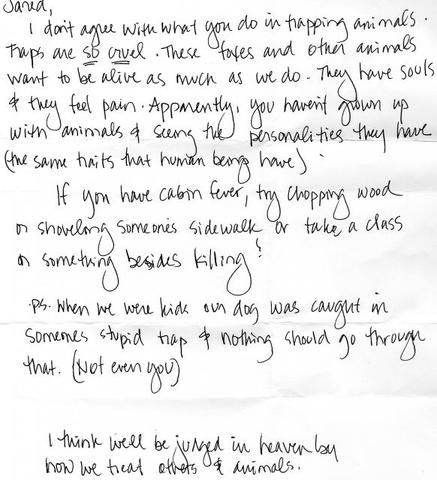 Jared,
I don't agree with what you do in trapping animals.
Traps are so cruel. These foxes and other animals
want to be alive as much as we do. They have souls
& they feel pain. Apparently, you haven't grown up
with animals & seeing the personalities they have
(the same traits that human beings have).
If you have cabin fever, try chopping wood
or shoveling someone's sidewalk or take a class
or something besides killing!
P.S. When we were kids our dog was caught in
someones stupid trap & nothing should go through
that. (Not even you)
I think we'll be judged in heaven by
how we treat others & animals.